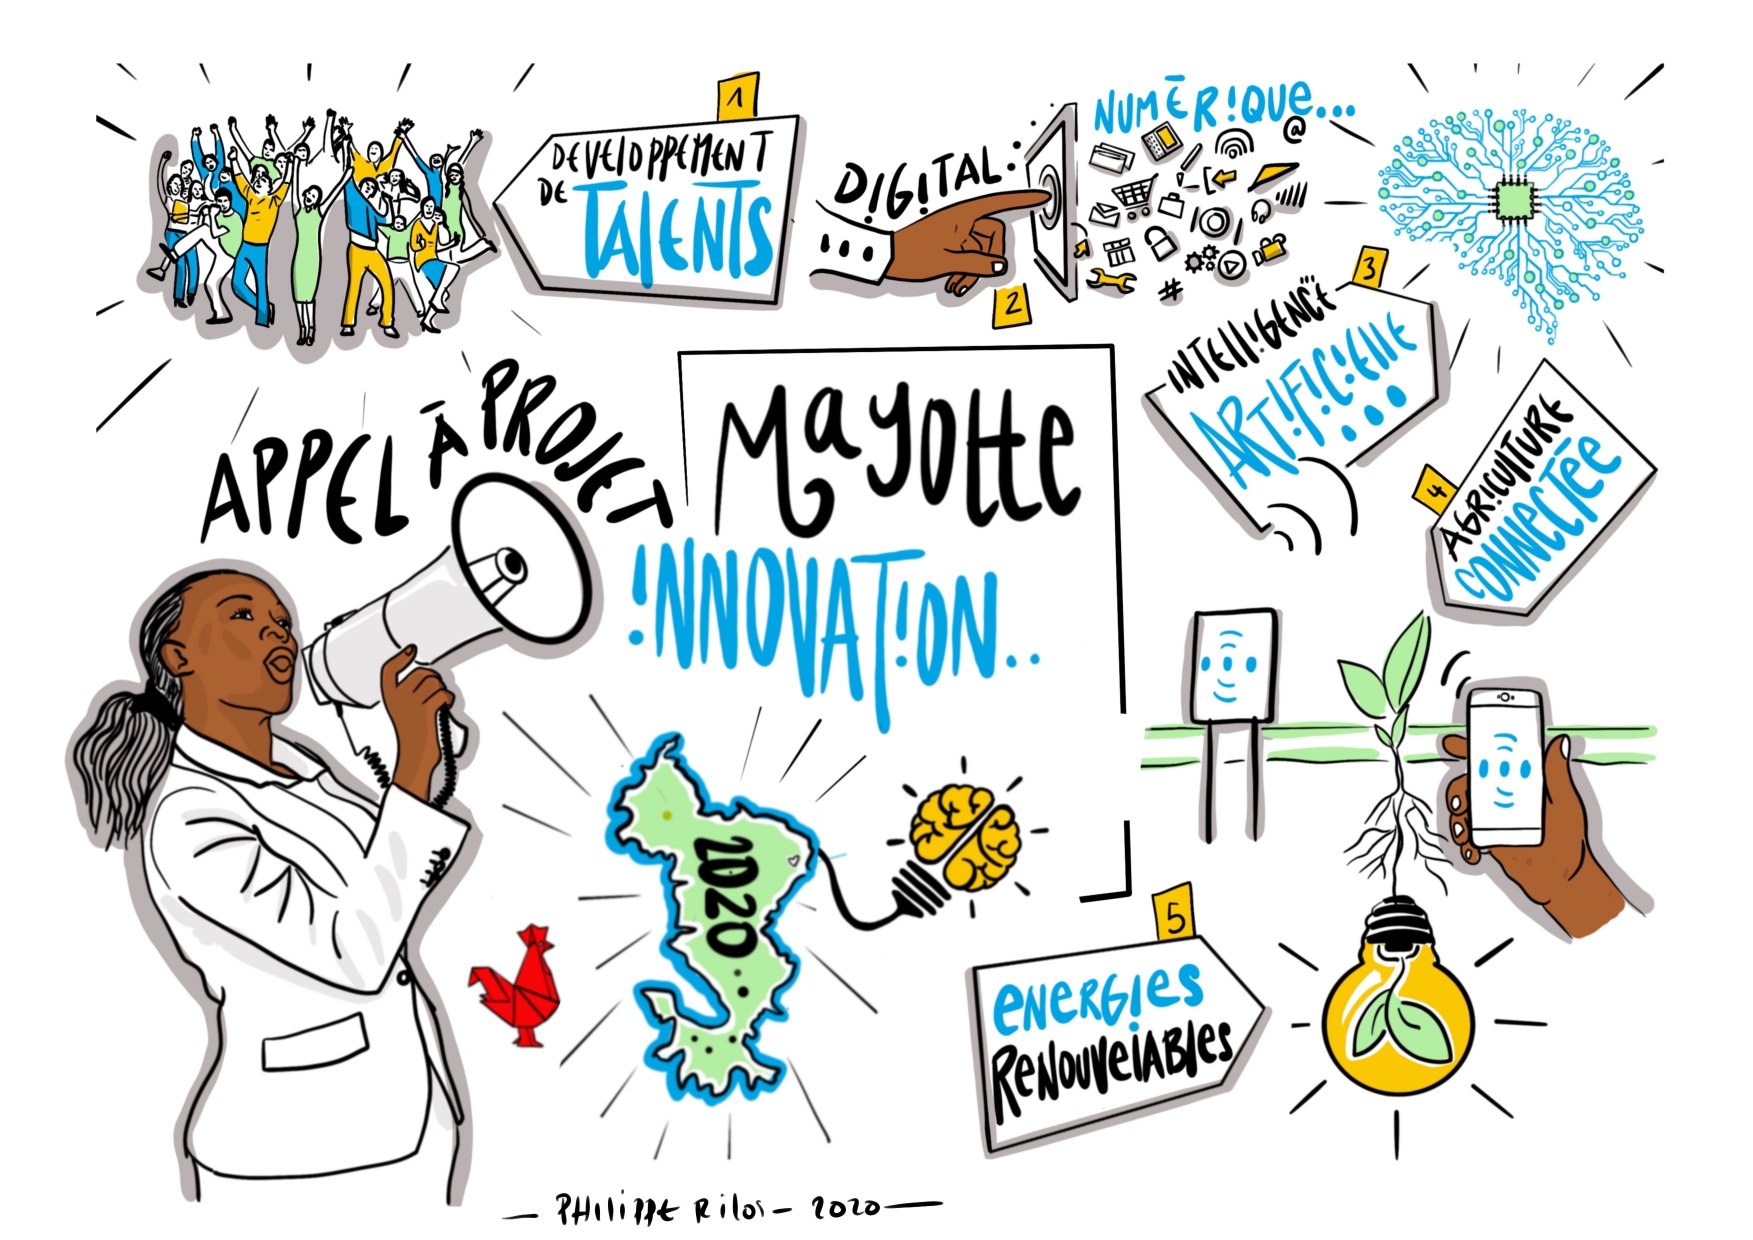 1
DEVELOPPEMENT
DE TALENTS
DIGITAL:
2
NUMÉRIQUE...
@
#
3
INTELLIGENCE
ARTIFICIELLE
...
4
AGRICULTURE
CONNECTÉE
APPEL À PROJET
Mayotte
INNOVATION..
2020
5
ENERGIES
RENOUVELABLES
— PHILIPPE RILOS — 2020 —